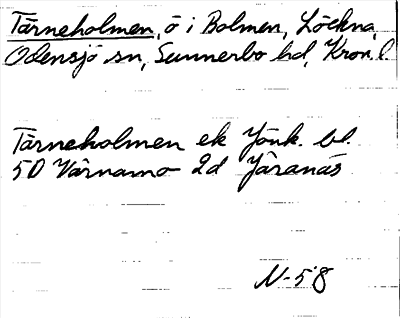 Tärneholmen, ö i Bolmen, Löckna,
Odensjö sn, Sunnerbo hd, Kron. l.
Tärneholmen ek Jönk. bl.
5D Värnamo 2d Järanäs
N-58